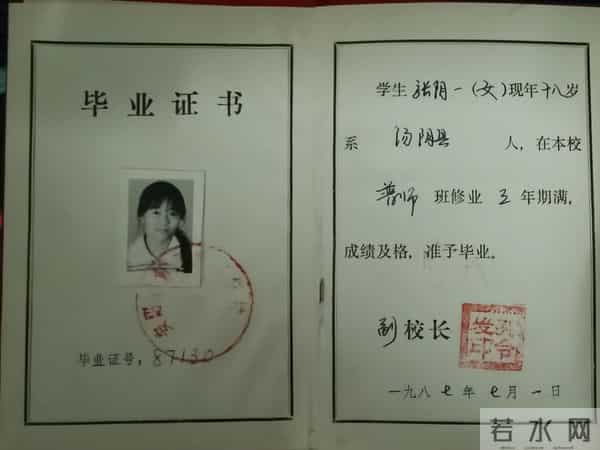 毕业证书
毕业证号：87130
学生 张阴一（女）现年十八岁
系 汤阴县 人，在本校
普师 班修业 三 年期满，
成绩及格，准予毕业。
副校长
一九八七年七月一日
若水网